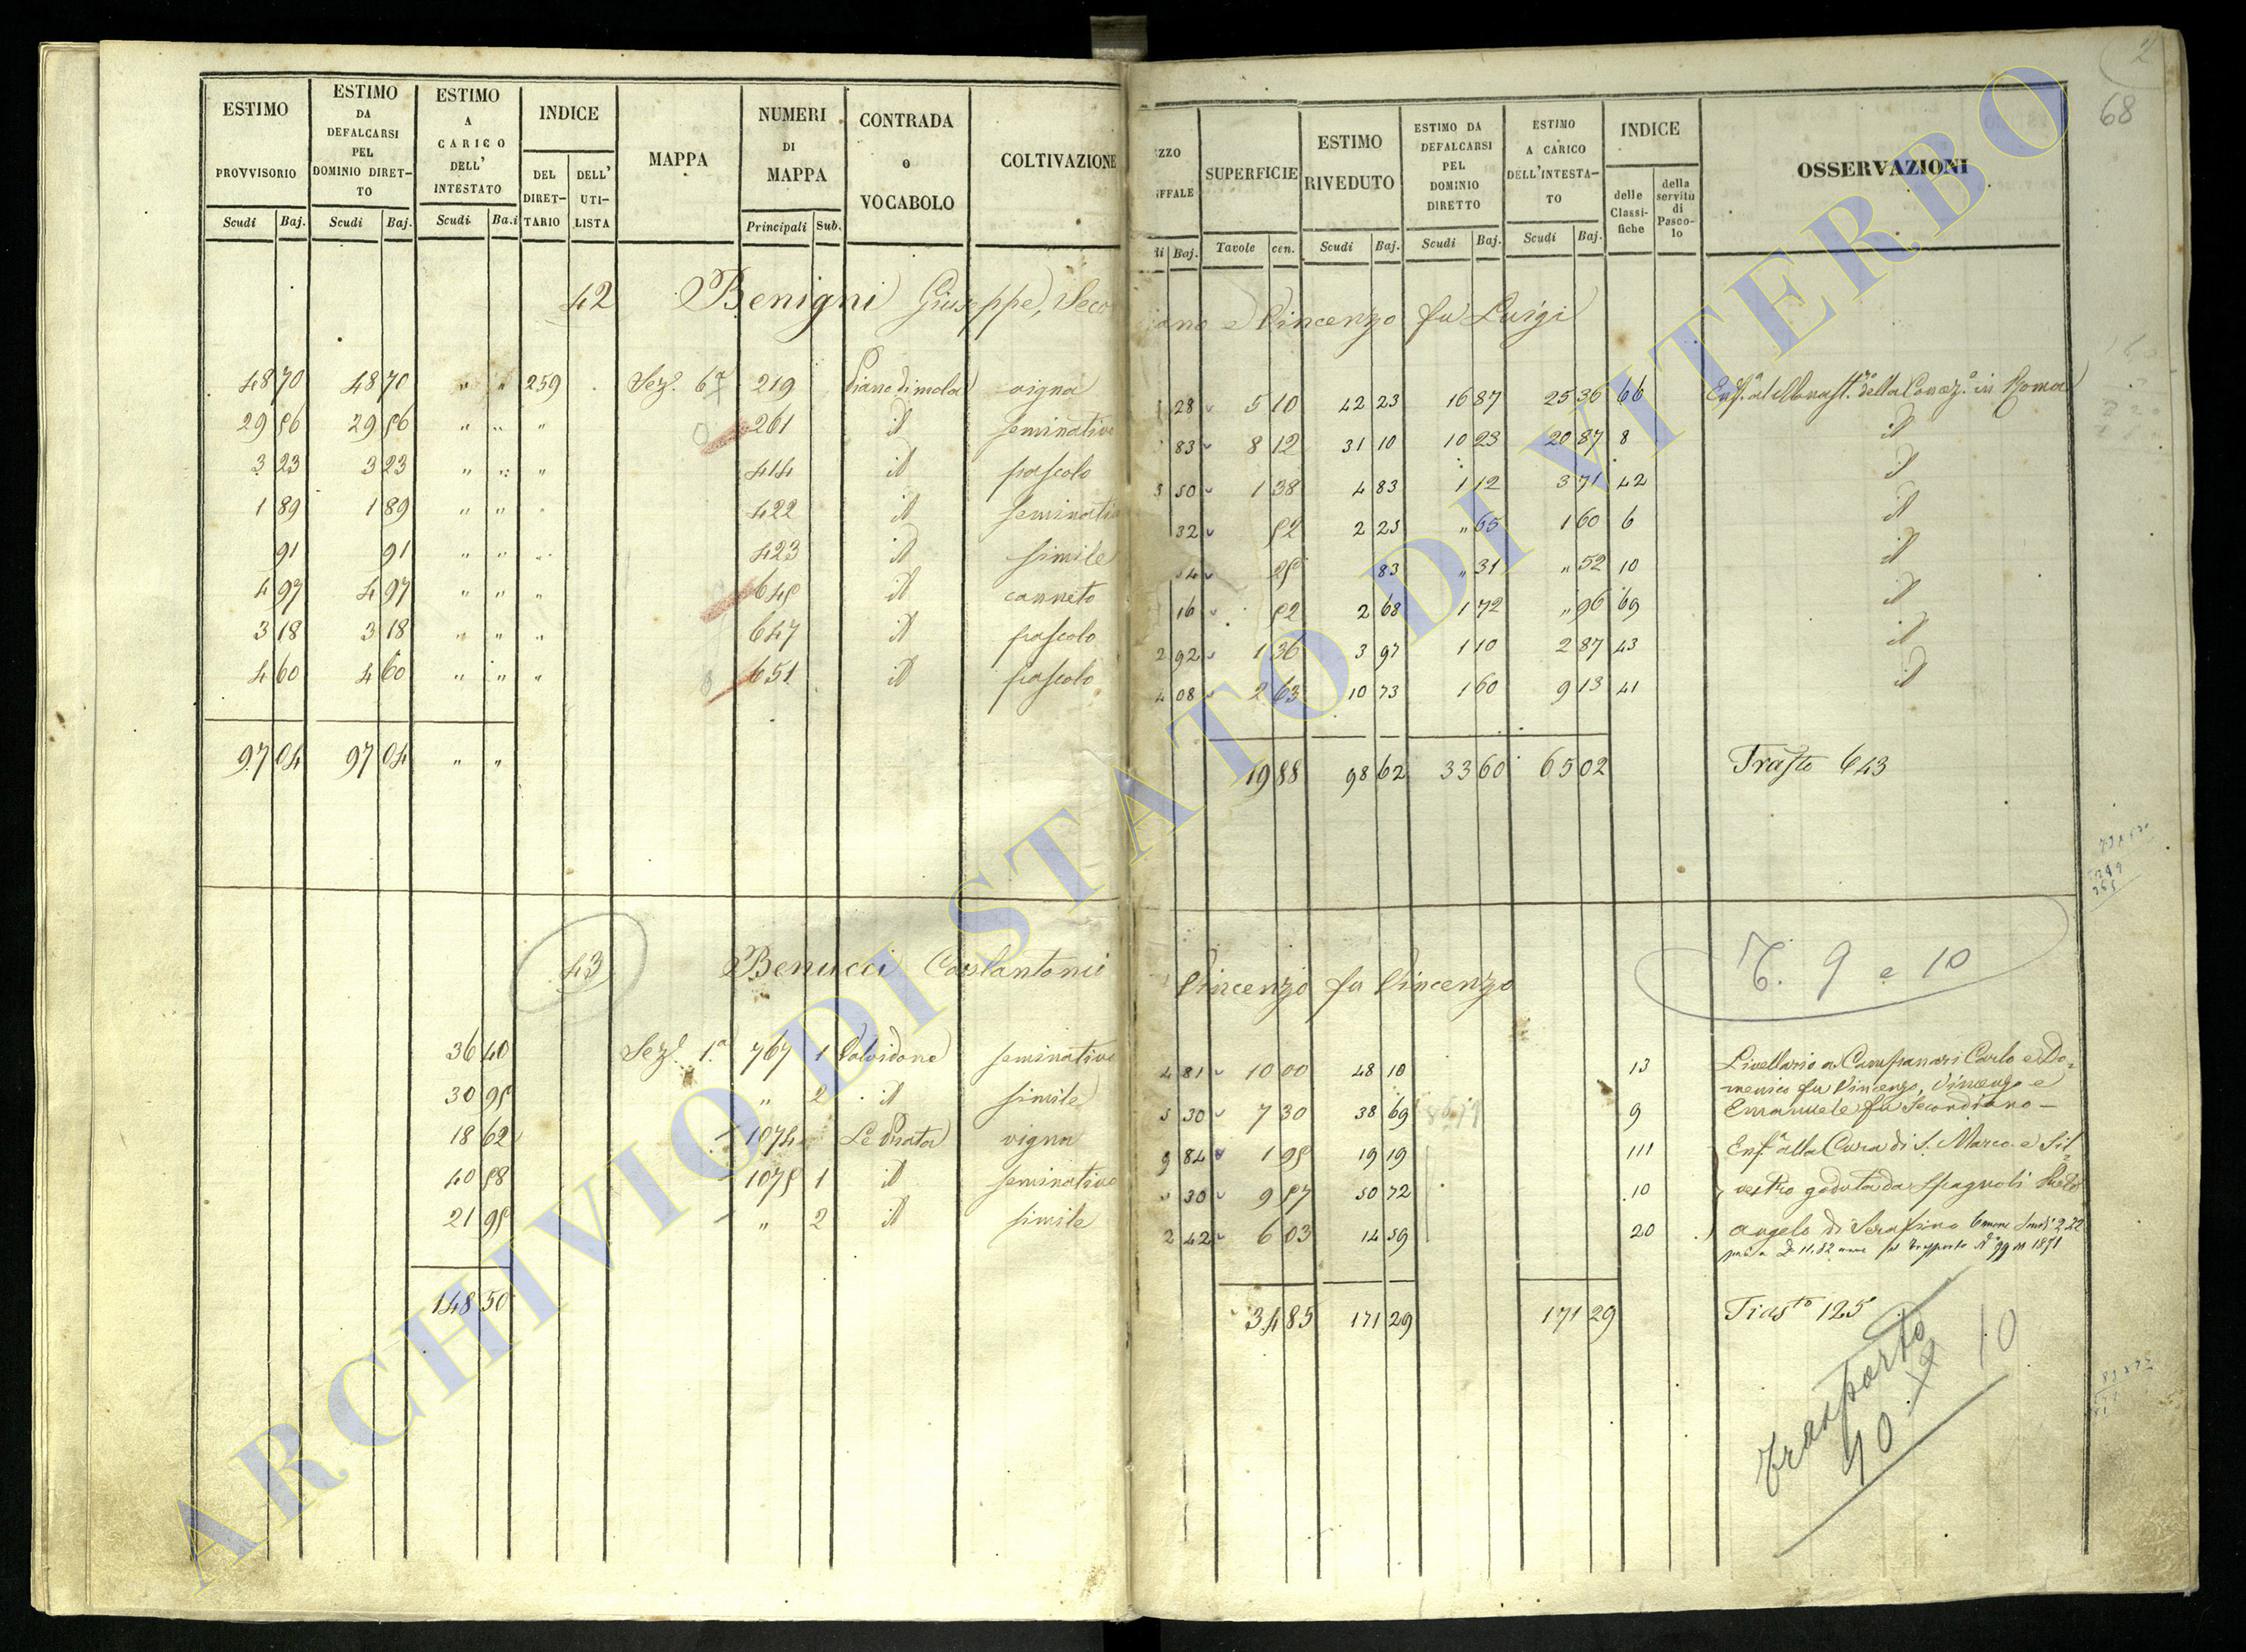 2
68
ESTIMO PROVVISORIO | ESTIMO DA DEFALCARSI PEL DOMINIO DIRETTO | ESTIMO A CARICO DELL' INTESTATO | INDICE | MAPPA | NUMERI DI MAPPA | CONTRADA o VOCABOLO | COLTIVAZIONE | ZZO IFFALE | SUPERFICIE | ESTIMO RIVEDUTO | ESTIMO DA DEFALCARSI PEL DOMINIO DIRETTO | ESTIMO A CARICO DELL'INTESTATO | INDICE | OSSERVAZIONI
DEL DIRETTARIO | DELL' UTILISTA | delle Classifiche | della servitù di Pascolo
Scudi | Baj. | Scudi | Baj. | Scudi | Ba.i | Principali | Sub. | di | Baj. | Tavole | cen. | Scudi | Baj. | Scudi | Baj. | Scudi | Baj.
42 Benigni Giuseppe, Seco iano e Vincenzo fu Luigi
48 70 | 48 70 | " | " | 259 | Sez.e 6a | 219 | Piano di mola | vigna | 28 | 5 10 | 42 23 | 16 87 | 25 36 | 66 | in Roma
29 56 | 29 56 | " | " | " | 261 | id | seminativo | 83 | 8 12 | 31 10 | 10 23 | 20 87 | 8 | id
3 23 | 3 23 | " | " | " | 414 | id | pascolo | 3 50 | 1 38 | 4 83 | 1 12 | 3 71 | 42 | id
1 89 | 1 89 | " | " | " | 422 | id | seminativo | 32 | 52 | 2 25 | " 65 | 1 60 | 6 | id
91 | 91 | " | " | " | 423 | id | simile | 25 | 83 | " 31 | " 52 | 10 | id
4 97 | 4 97 | " | " | " | 645 | id | canneto | 16 | 52 | 2 68 | 1 72 | " 96 | 69 | id
3 18 | 3 18 | " | " | " | 647 | id | pascolo | 2 92 | 1 36 | 3 97 | 1 10 | 2 87 | 43 | id
4 60 | 4 60 | " | " | " | 651 | id | pascolo | 4 08 | 2 63 | 10 73 | 1 60 | 9 13 | 41 | id
97 04 | 97 04 | " | " | 19 88 | 98 62 | 33 60 | 65 02 | Trasto 643
43 Benucci Carlantonio Vincenzo fu Vincenzo
T. 9 e 10
36 40 | Sez.e 1.a | 767 | 1 | Valvidone | seminativo | 4 81 | 10 00 | 48 10 | 13 | Livellario a Campanari Carlo e Do=
menico fu Vincenzo, Vincenzo e
30 95 | " | 2 | id | simile | 5 30 | 7 30 | 38 69 | 9 | Emanuele fu Secondiano —
18 62 | 1074 | Le Prata | vigna | 9 84 | 1 95 | 19 19 | 111 | Enf.a alla Cura di S. Marco e Sil=
40 58 | 1075 | 1 | id | seminativo | 30 | 9 57 | 50 72 | 10 | vestro goduta da Spagnoli
21 95 | " | 2 | id | simile | 2 42 | 6 03 | 14 59 | 20 | angelo di Serafino
1871
148 50 | 34 85 | 171 29 | 171 29 | Trasto 125
trasporto
10
10
ARCHIVIO DI STATO DI VITERBO